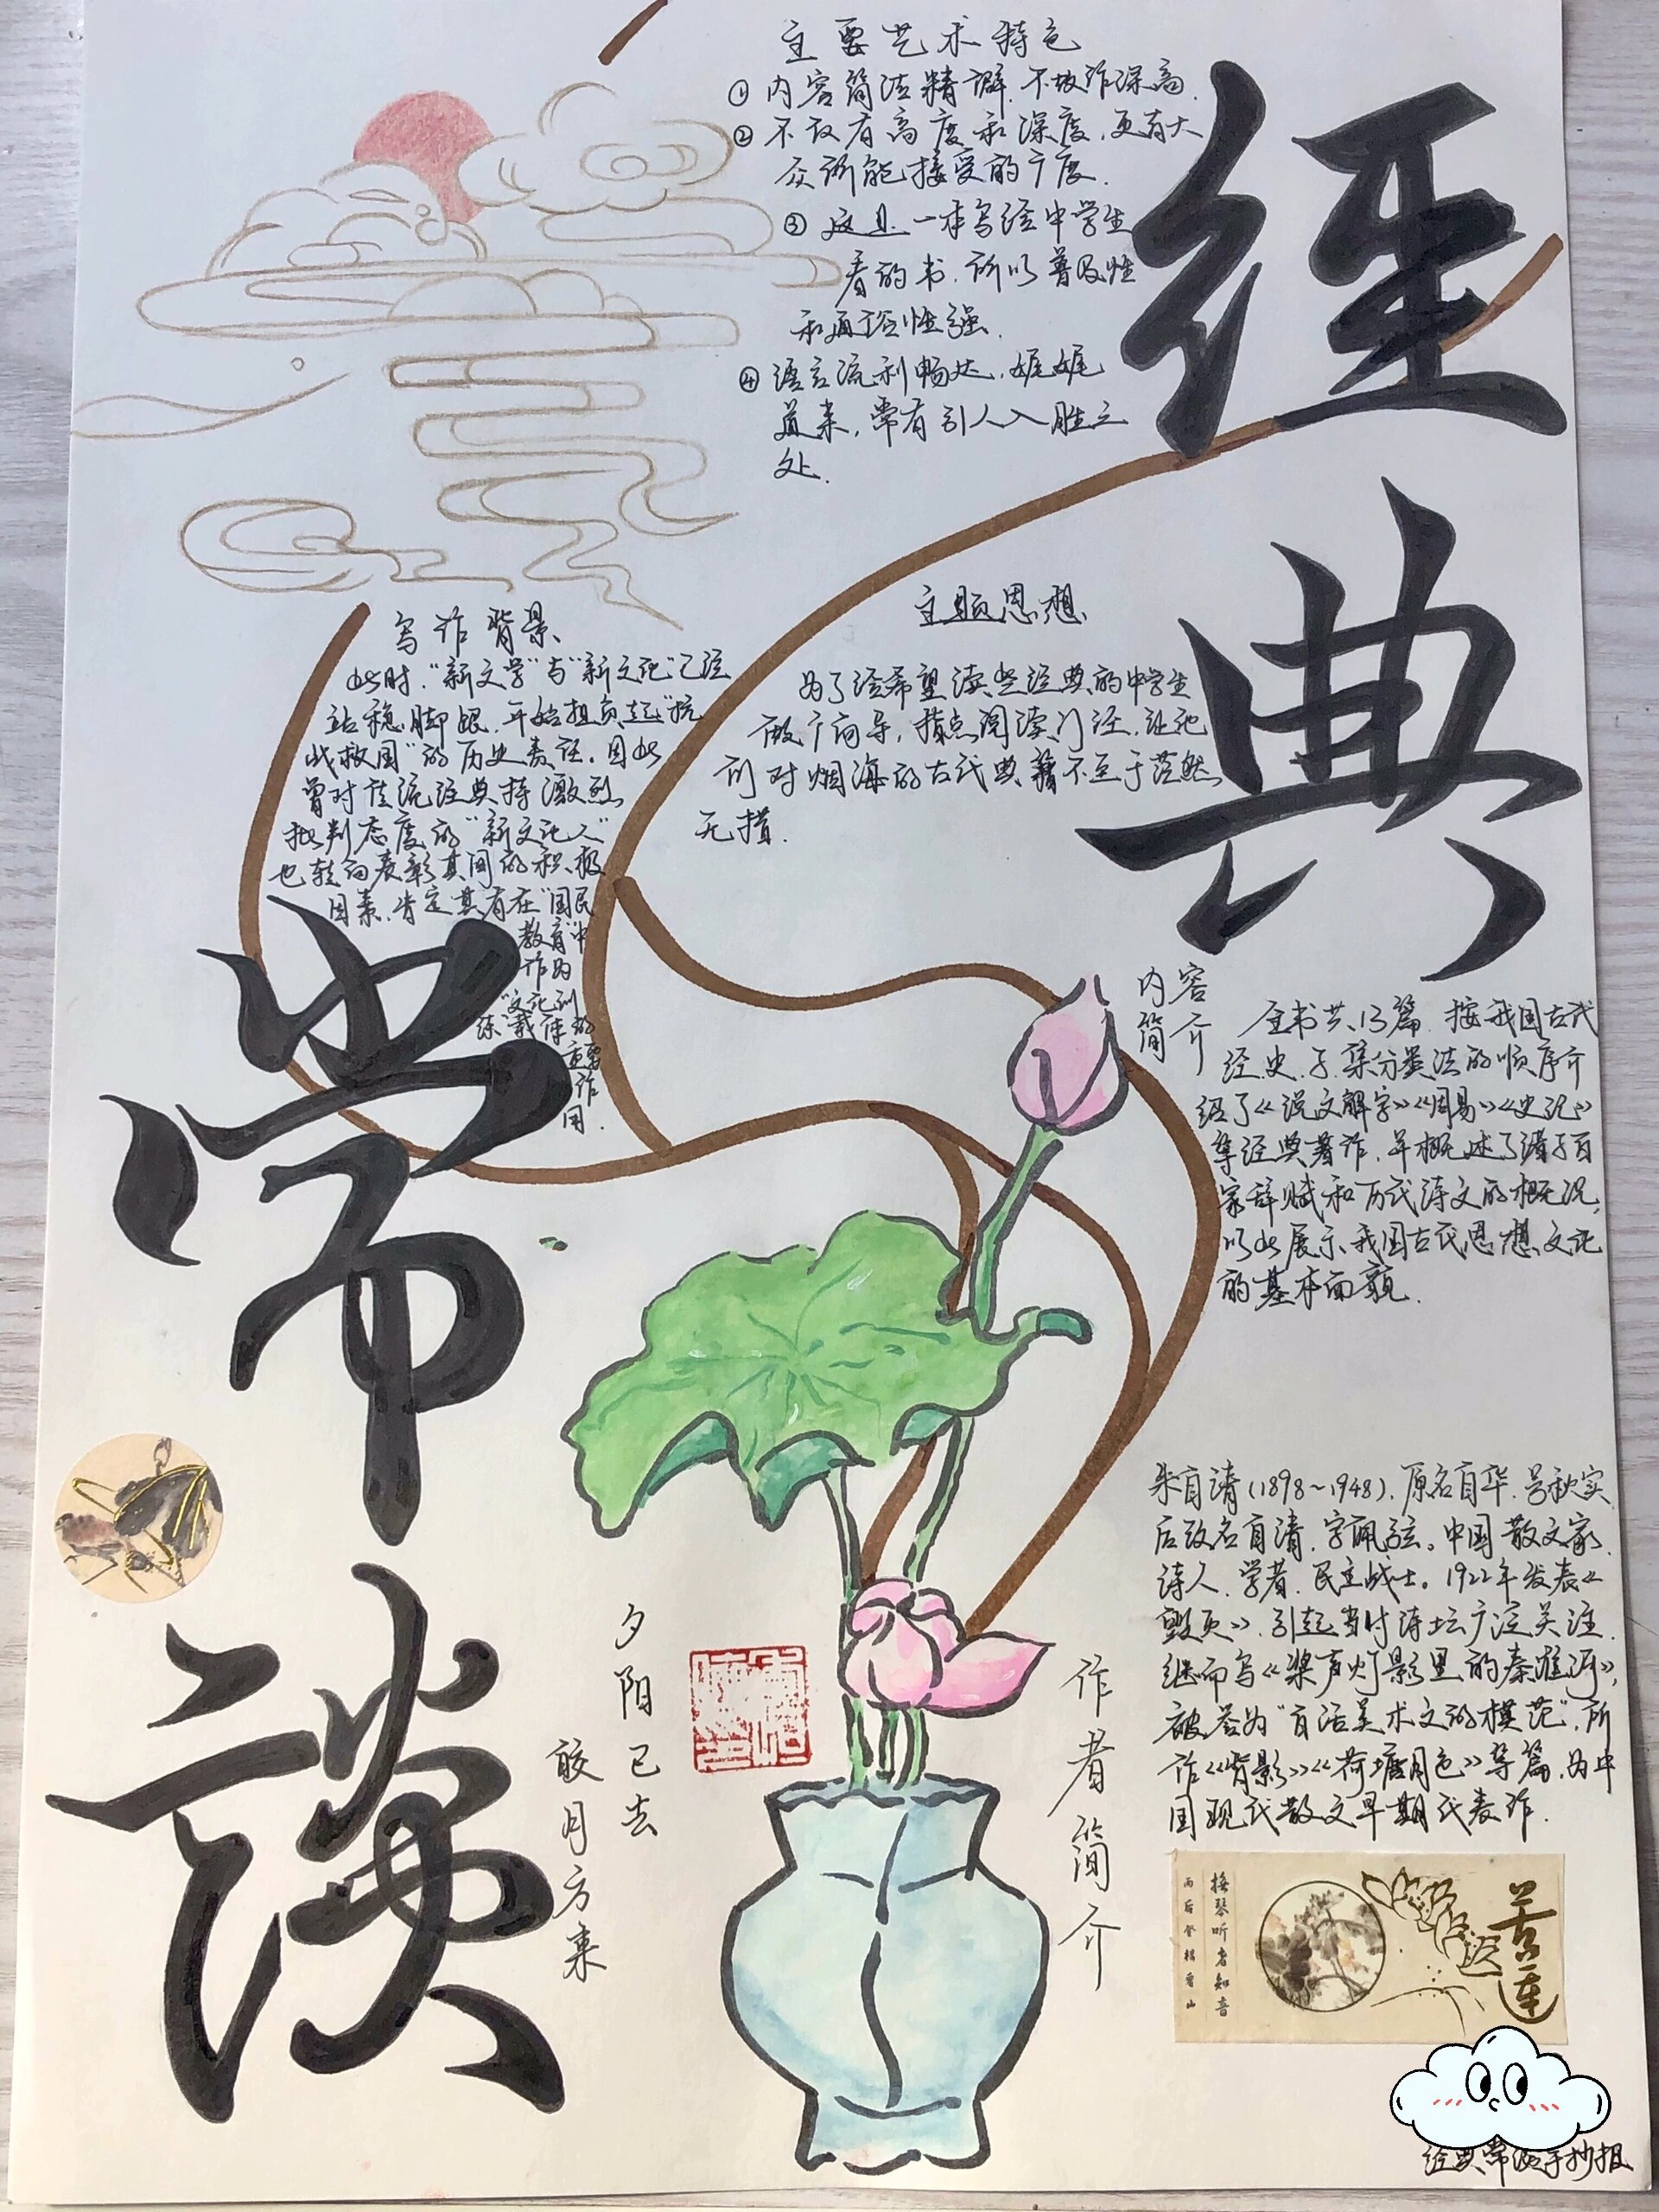 經
典
常
談
主要艺术特色
①内容简洁精辟.不故作深高.
②不仅有高度和深度,更有大
众所能接受的广度.
③这是一本写给中学生
看的书.所以普及性
和通俗性强.
④语言流利畅达,娓娓
道来,常有引人入胜之
处.
写作背景
此时,"新文学"与"新文化"已经
站稳脚跟.开始担负起"抗
战救国"的历史责任.因此
曾对传统经典持激烈
批判态度的"新文化人"
也转向表彰其间的积极
因素.肯定其有在"国民
教育"中
作为
"文化训
练"载体的
重要
作
用.
主题思想
为了给希望读些经典的中学生
做个向导,指点阅读门径.让他
们对烟海的古代典籍不至于茫然
无措.
内容
简介
全书共13篇.按我国古代
经.史.子.集分类法的顺序介
绍了《说文解字》《周易》《史记》
等经典著作.并概述了诸子百
家辞赋和历代诗文的概况,
以此展示我国古代思想、文化
的基本面貌.
作者简介
朱自清(1898~1948).原名自华.号秋实
后改名自清.字佩弦。中国散文家.
诗人.学者.民主战士。1922年发表《
毁灭》.引起当时诗坛广泛关注.
继而写《桨声灯影里的秦淮河》,
被誉为"白话美术文的模范".所
作《背影》《荷塘月色》等篇.为中
国现代散文早期代表作.
夕阳已去
皎月方来
苦莲
抚琴听者知音
经典常谈手抄报